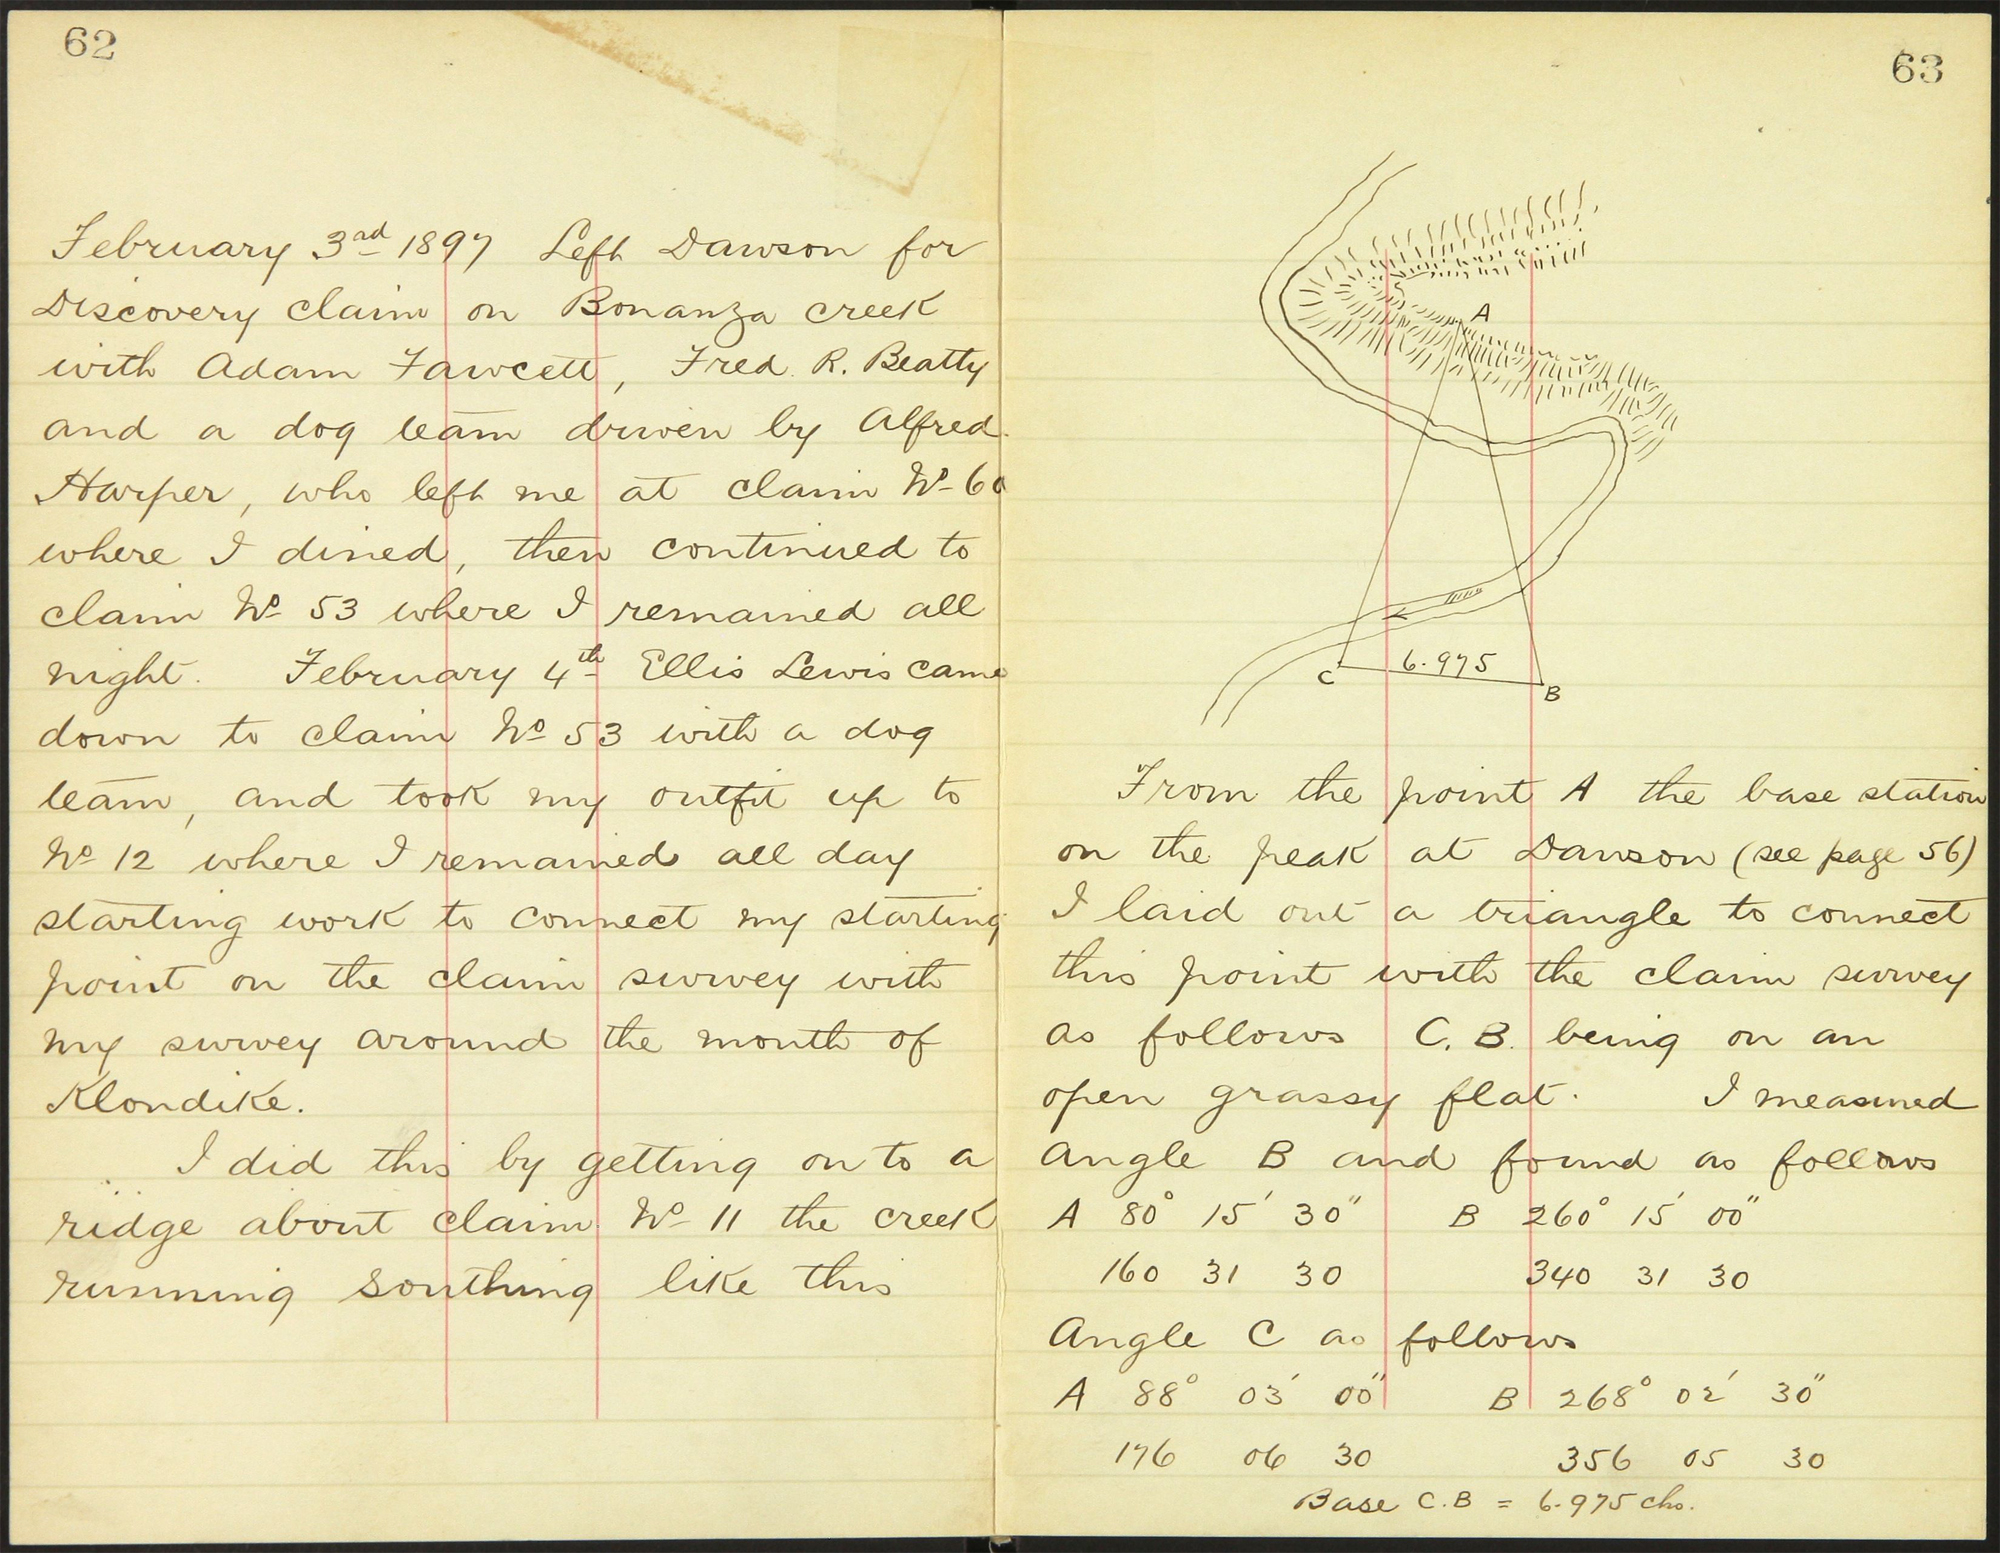 62
February 3rd 1897 Left Dawson for
Discovery claim on Bonanza creek
with Adam Fawcett, Fred. R. Beatty
and a dog team driven by Alfred
Harper, who left me at claim No 60
where I dined, then continued to
claim No 53 where I remained all
night. February 4th Ellis Lewis came
down to claim No 53 with a dog
team, and took my outfit up to
No 12 where I remained all day
starting work to connect my starting
point on the claim survey with
my survey around the month of
Klondike.
I did this by getting on to a
ridge about claim No 11 the creek
running somthing like this
63
A
C
6.975
B
From the point A the base station
on the peak at Dawson (see page 56)
I laid out a triangle to connect
this point with the claim survey
as follows C.B. being on an
open grassy flat. I measured
Angle B and found as follows
A 80° 15' 30" B 260° 15' 00"
160 31 30 340 31 30
Angle C as follows
A 88° 03' 00" B 268° 02' 30"
176 06 30 356 05 30
Base C.B = 6.975 chs.